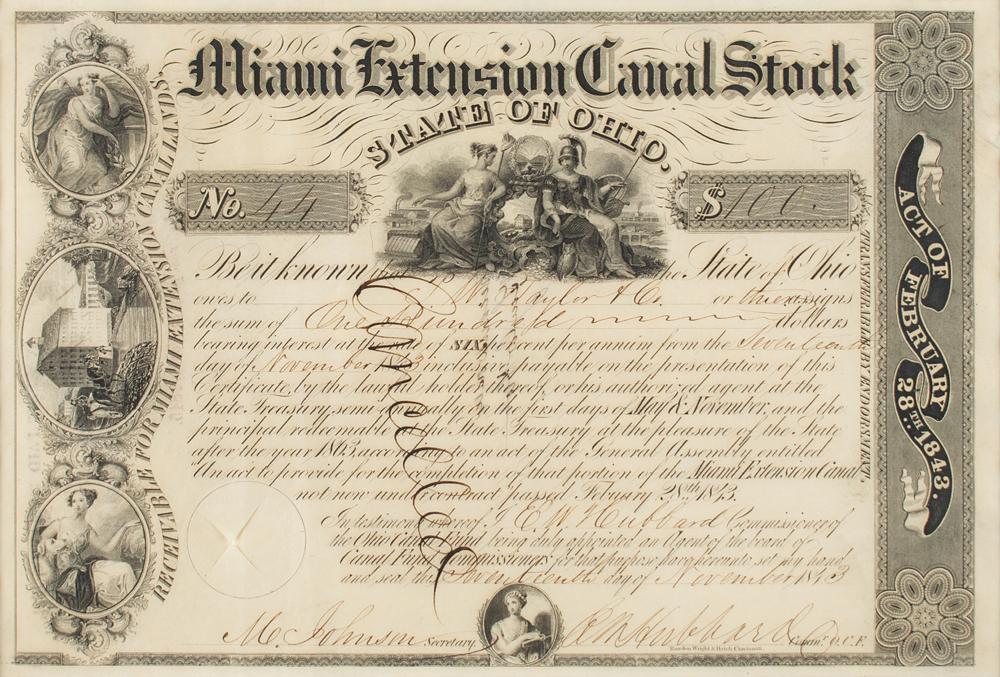 Miami Extension Canal Stock
STATE OF OHIO.
No. 44
$ 100.
Be it known that the State of Ohio
owes to W. Taylor & Co. or their assigns
the sum of One Hundred dollars
bearing interest at the SIX per cent per annum from the Seventeenth
day of November 1843 inclusive payable on the presentation of this
Certificate, by the lawful holder thereof, or his authorized agent at the
State Treasury, semi annually on the first days of May & November, and the
principal redeemable at the State Treasury at the pleasure of the State
after the year 1863, according to an act of the General Assembly entitled
"An act to provide for the completion of that portion of the Miami Extension Canal
not now under contract" passed Febuary 28th 1843.
In testimony whereof I E. W. Hubbard Commissioner of
the Ohio Canal Fund being duly appointed an Agent of the board of
Canal Fund Commissioners for that purpose, have hereunto set my hand
and seal this Seventeenth day of November 1843
M. Johnson Secretary.
E W Hubbard Comm.r O.C.F.
Rawdon Wright & Hatch Cincinnati.
Cancelled
RECEIVABLE FOR MIAMI EXTENSION CANAL LANDS.
TRANSFERRABLE BY ENDORSEMENT.
ACT OF FEBRUARY 28TH 1843.